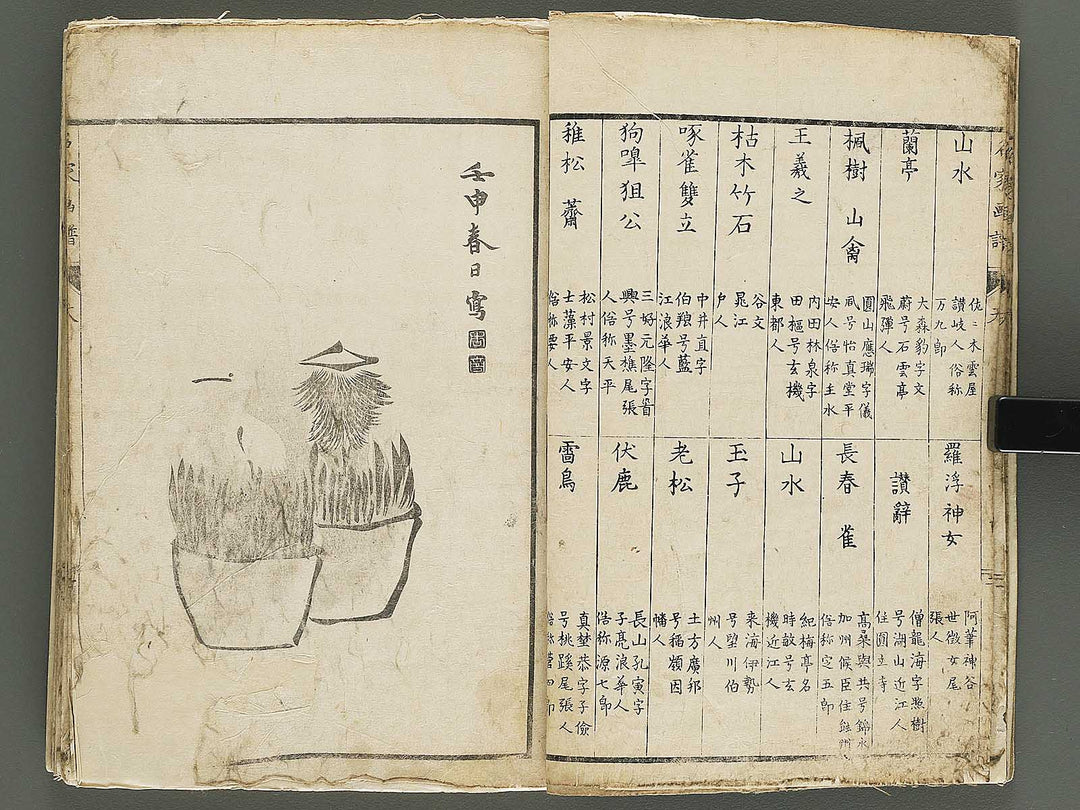 名家画譜
山水
佐々木雲屋
讃岐人俗称
万九郎
蘭亭
大森豹字文
蔚号石雲亭
飛弾人
楓樹 山禽
圓山應瑞字儀
鳳号怡真堂平
安人俗称主水
王羲之
内田林泉字
田樞号玄機
東都人
枯木竹石
谷文
晁江
戸人
啄雀雙立
中井直字
伯 号藍
江浪華人
狗嘷狙公
三好元隆字
興号墨樵尾張
人俗称天平
稚松 薺
松村景文字
士藻平安人
俗称要人
羅浮神女
阿華神谷
世徴女尾
張人
讃辭
僧龍海字
号湖山近江人
住圓立寺
長春 雀
高桑與共号錦水
加州候臣住
俗称定五郎
山水
紀梅亭名
時敏号玄
機近江人
玉子
来海伊勢
号望川伯
州人
老松
土方廣邦
号稲嶺因
幡人
伏鹿
長山孔寅字
子亮浪華人
俗称源七郎
雷鳥
真埜恭字子儉
号桃蹊尾張人
俗称 四郎
壬申春日寫